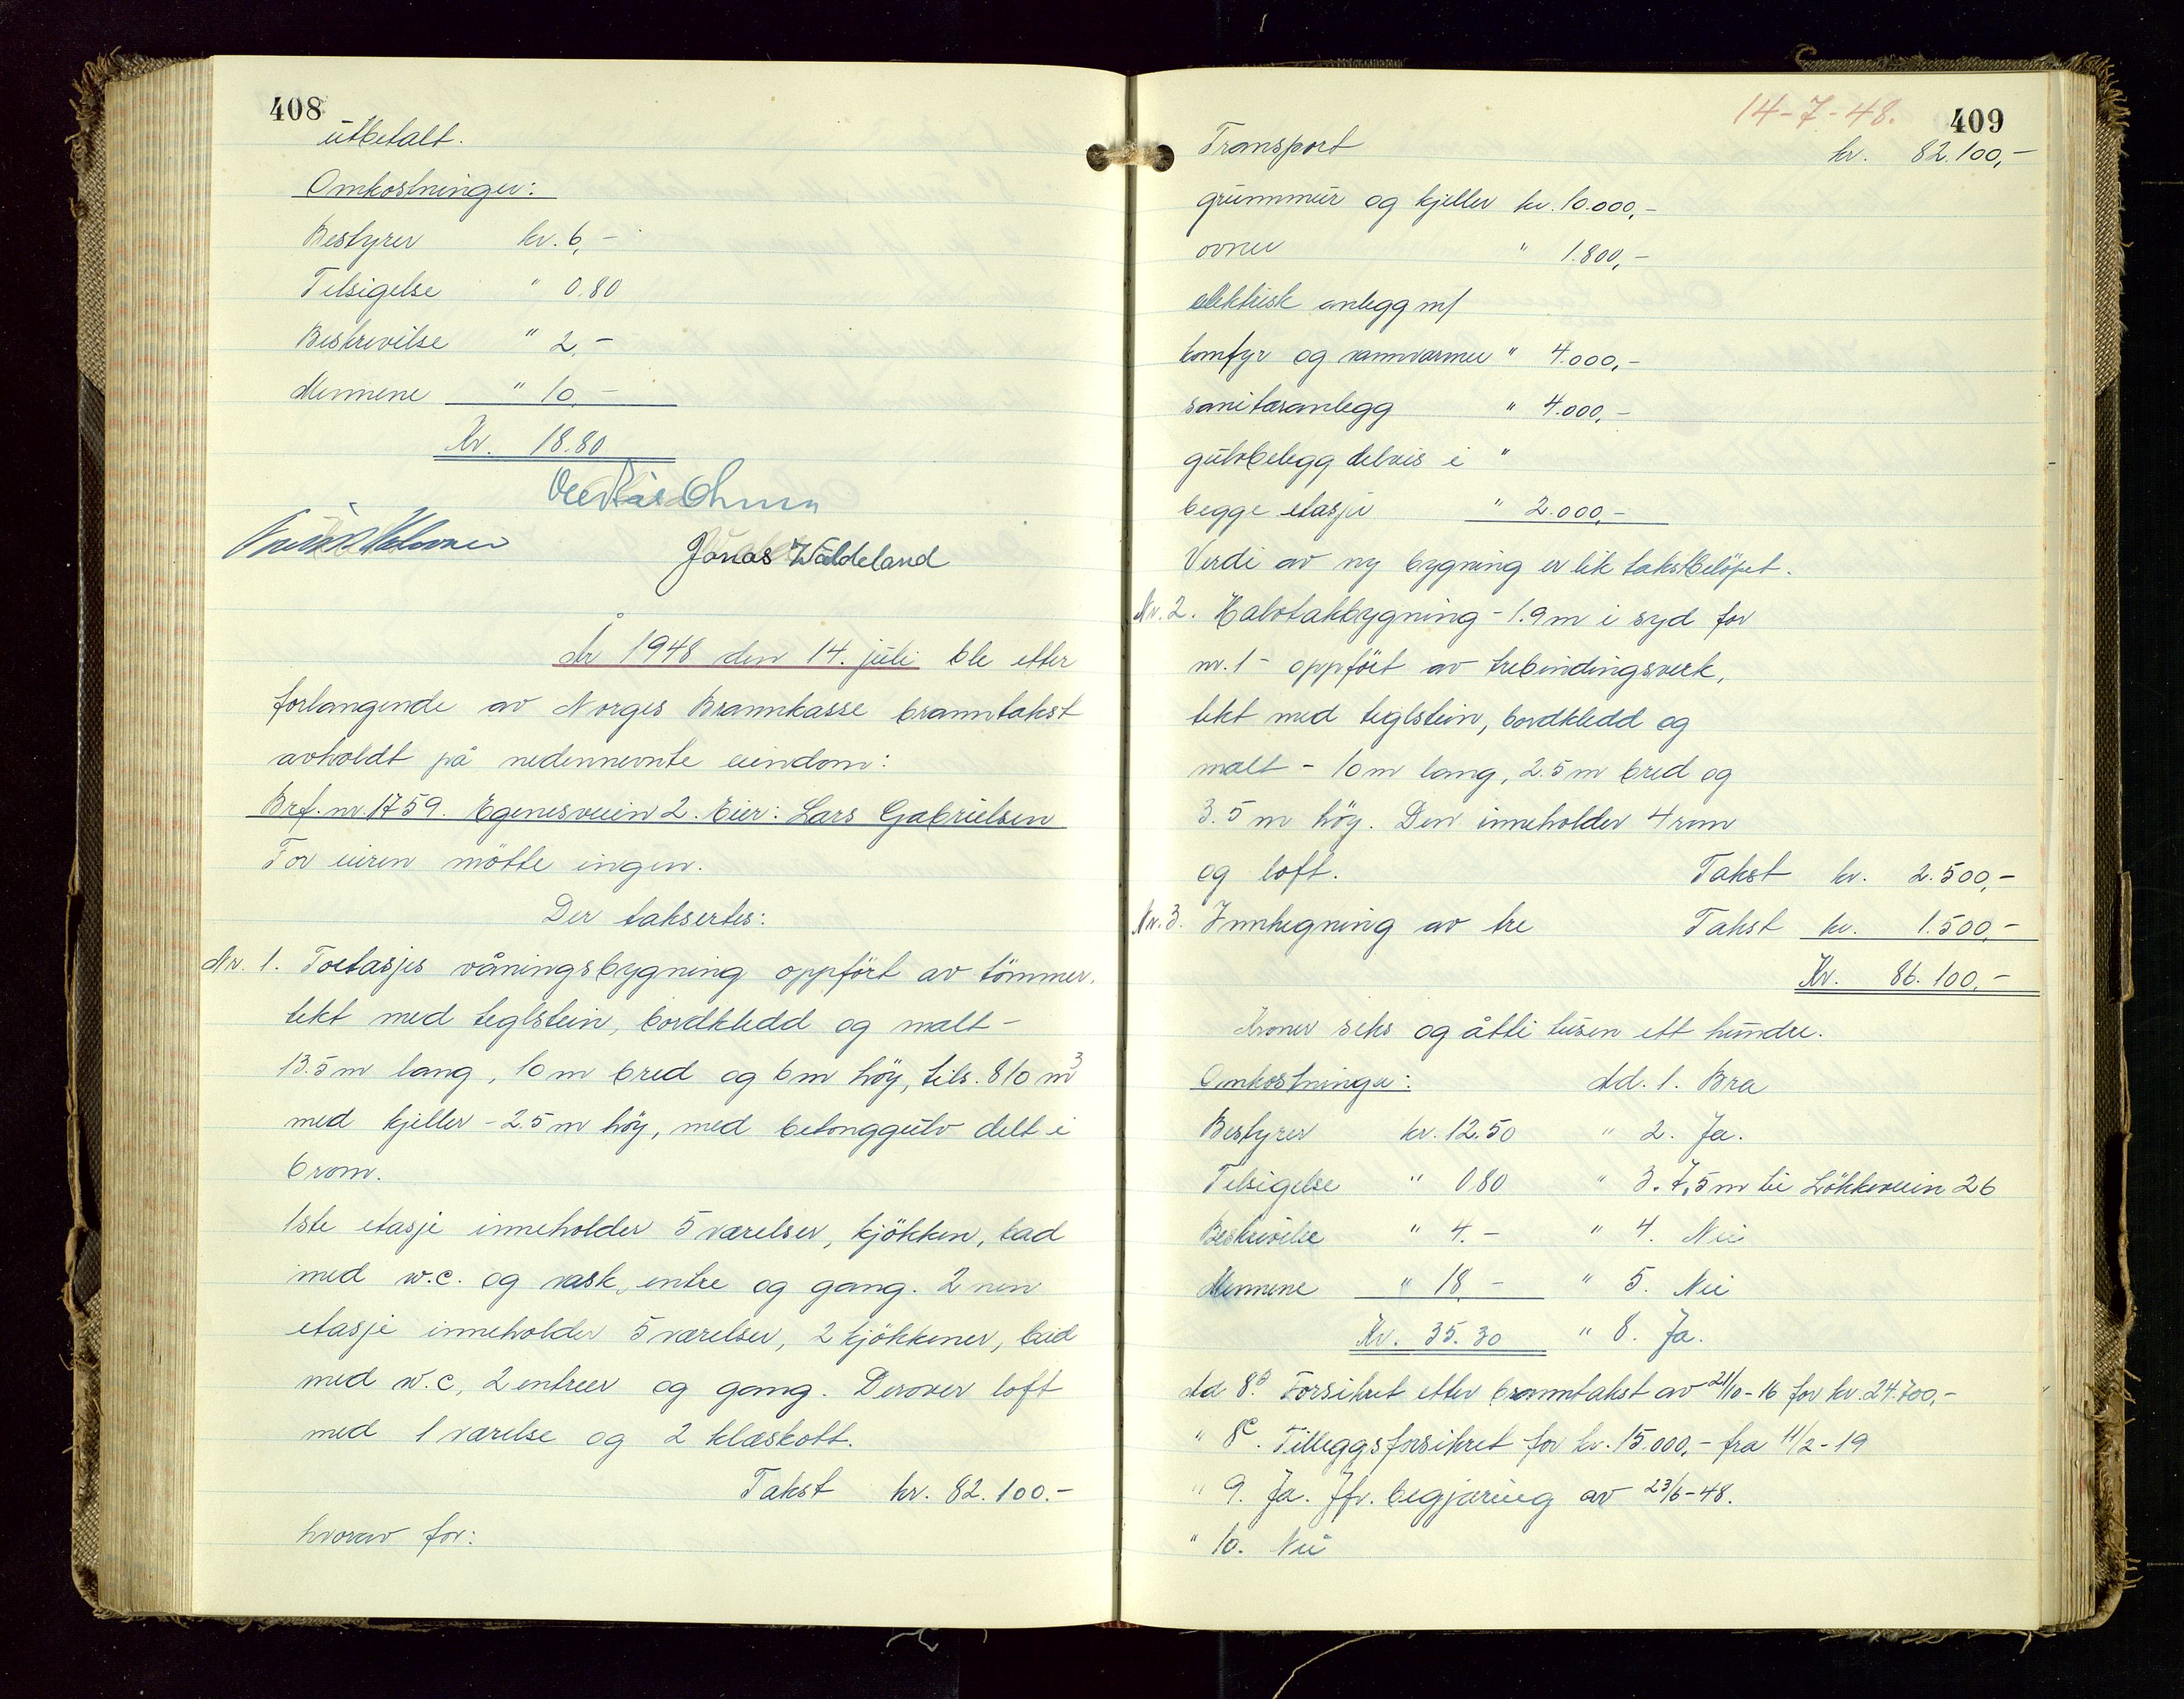 408
utbetalt.
Omkostninger:
Bestyrer kr. 6,-
Tilsigelse " 0.80
Beskrivelse " 2,-
Mennene " 10,-
Kr. 18.80
Jonas Wåldeland
År 1948 den 14. juli ble etter
forlangende av Norges Brannkasse branntakst
avholdt på nedennevnte eiendom:
Brf. nr. 1759. Egenesveien 2. Eier: Lars Gabrielsen
For eieren møtte ingen.
Der taksertes:
Nr. 1. Toetasjes våningsbygning oppført av tømmer,
tekt med teglstein, bordkledd og malt -
13.5 m lang, 10 m bred og 6 m høy, tils. 810 m³
med kjeller - 2.5 m høy, med betonggulv delt i
6 rom.
1ste etasje inneholder 5 værelser, kjøkken, bad
med w.c. og vask, entre og gang. 2nen
etasje inneholder 5 værelser, 2 kjøkkener, bad
med w.c, 2 entreer og gang. Derover loft
med 1 værelse og 2 klæskott.
Takst kr. 82.100.-
hvorav for:
14-7-48.
409
Transport kr. 82.100,-
grunnmur og kjeller kr. 10.000,-
ovner " 1.800,-
elektrisk anlegg m/
komfyr og vannvarmer " 4.000,-
sanitæranlegg " 4.000,-
gulvbelegg delvis i "
begge etasjer " 2.000,-
Verdi av ny bygning er lik takstbeløpet.
Nr. 2. Halvtakbygning - 1.9 m i syd for
nr. 1 - oppført av trebindingsverk,
tekt med teglstein, bordkledd og
malt - 10 m lang, 2.5 m bred og
3.5 m høy. Den inneholder 4 rom
og loft. Takst kr. 2.500,-
Nr. 3. Innhegning av tre Takst kr. 1.500,-
Kr. 86.100,-
Kroner seks og åtti tusen ett hundre.
Omkostninger: Ad. 1. Bra
Bestyrer kr. 12.50 " 2. Ja.
Tilsigelse " 0.80 " 3. 7,5 m til Løkkeveien 26
Beskrivelse " 4.- " 4. Nei
Mennene " 18,- " 5. Nei
Kr. 35.30 " 8. Ja.
Ad 8.b Forsikret etter branntakst av 21/10-16 for kr. 24.700,-
" 8c. Tilleggsforsikret for kr. 15.000,- fra 11/2-19
" 9. Ja. Jfr. begjæring av 23/6-48.
" 10. Nei